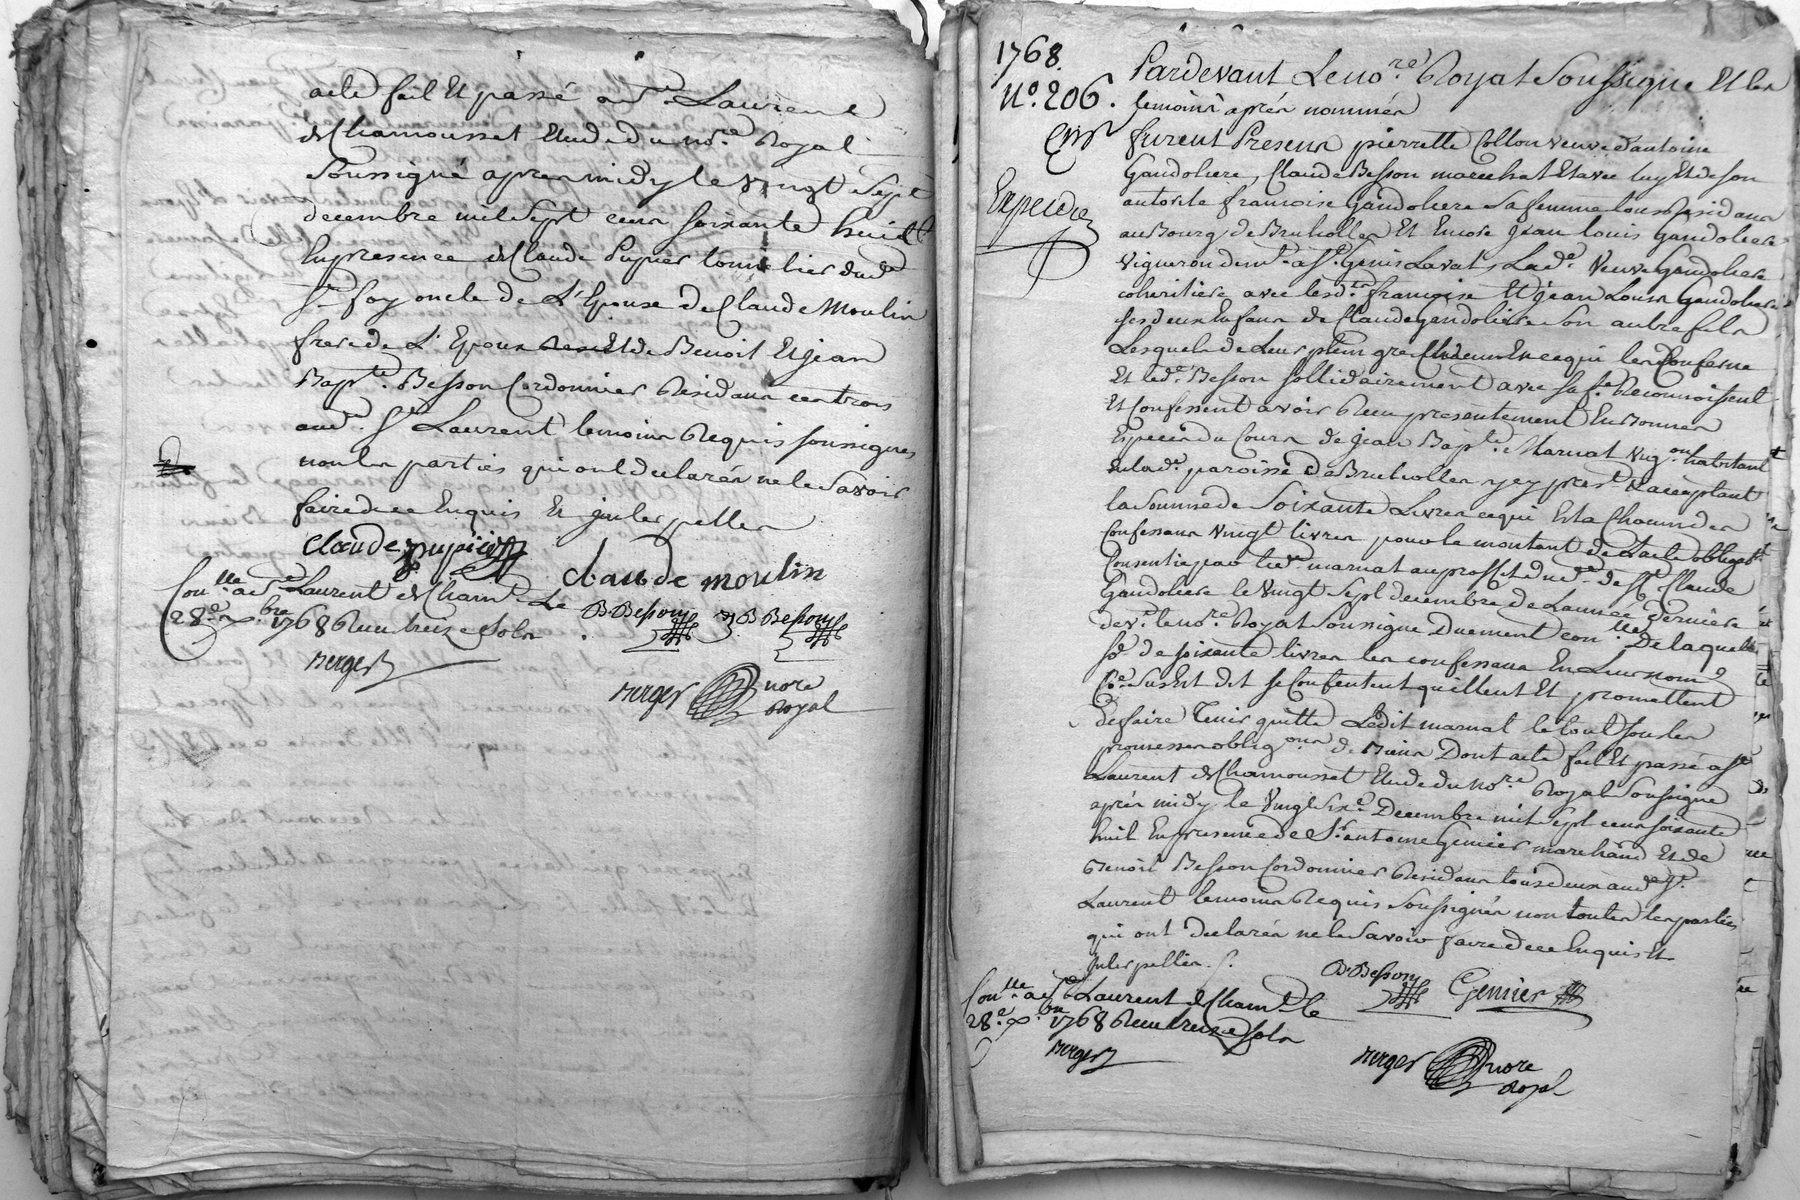 acte fait Et passé aud.t St Laurent
de Chamousset Etude du no.re Royal
Soussigné apres midy le Vingt Sept
decembre mil Sept cens soixante huit
En presence de Claude Pupier tonnelier dud.
St foy oncle de L'Epouse de Claude Moulin
frere de L'Epoux Et de Benoit Et jean
Bap.te Besson Cordonnier Residans
aud. St Laurent temoins Requis soussignes
non les parties qui ont declarés ne le Savoir
faire de ce Enquis Et jnterpellés
claude pupier
claude moulin
Con.lle a St Laurent de Cham.t Le
28.e x.bre 1768 Reçu treize Sols
B Besson JB Besson
Berger
Berger nore
Royal
1768.
N.o 206.
Expediée
Pardevant Le no.re Royal Soussigné Et les
temoins aprés nommés
furent Presens pierrette Collon veuve d'antoine
Gandoliere, Claude Besson marechal Et avec luy Et de son
autorité francoise Gandoliere Sa femme tous Residans
au Bourg de Brulloles Et Encore Jean Louis Gandoliere
Vigneron dem.t a St Genis Laval, Lad.e Veuve Gandoliere
coheritiere avec lesd.ts francoise Et Jean Louis Gandoliere
ses deux Enfans de Claude gandoliere Son autre fils
Lesquels de Leur plein gré Chacun En ce qui les Conserne
Et led.t Besson sollidairement avec sa f.e Reconnoissent
Et Confessent avoir Reçu presentement En Bonnes
Especes du Cours de jean Bap.te Marnat Vig.on habitant
En lad.e paroisse de Brulloles jcy pres.t Et acceptant
la Somme de Soixante Livres ce qui Est a Chacun des
Confessans Vingt livres pour le montant de L'acte obligat.
Consentie par led. marnat au proffit dud. St Claude
Gandoliere le Vingt Sept decembre de L'année derniere
dev.t le no.re Royal Soussigné Duement con.llé De laquelle
So.e de soixante livres les confessans En Leur nom
Susdit se Contentent quittent Et promettent
De faire Tenir quitte Ledit marnat le tout sous les
promesses oblig.ons de Biens Dont acte fait Et passé a St
Laurent de Chamousset Etude du No.re Royal Soussigné
aprés midy le Vingt Six.e Decembre mil Sept cens soixante
huit En presence de Sr antoine Genier marchand Et de
Benoit Besson Cordonnier Residans tous deux aud. St
Laurent temoins Requis Soussignés non toutes les parties
qui ont declarés ne le Savoir faire de ce Enquis Et
Jnterpellés.
B Besson Genier
Con.lle a St Laurent de Cham.t Le
28.e x.bre 1768 Reçu treize Sols
Berger
Berger nore
Royal